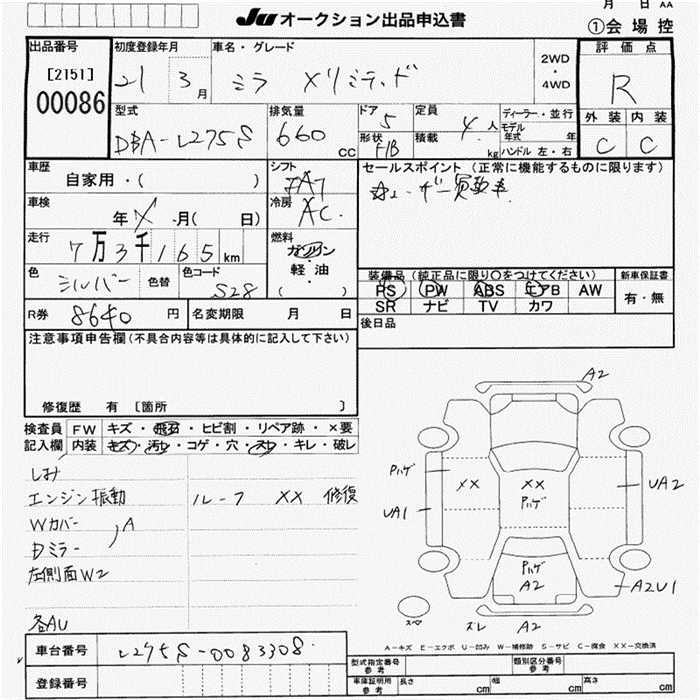 月 日 AA
JU オークション出品申込書
①会場控
出品番号
[2151]
00086
初度登録年月
21 3月
車名・グレード
ミラ メリミテッド
2WD
・
4WD
評価点
R
外装 内装
C C
型式
DBA-L275S
排気量
660 cc
ドア
5
形状
F/B
定員
4人
積載
kg
ディーラー・並行
モデル年式 年
ハンドル 左・右
車歴
自家用・( )
シフト
FA7
セールスポイント (正常に機能するものに限ります)
車検
年 X 月( 日)
冷房
AC
走行
7万3千165km
燃料
ガソリン
軽・油
( )
色
シルバー
色替
色コード
S28
装備品 (純正品に限り○をつけてください)
PS PW ABS エアB AW
SR ナビ TV カワ
新車保証書
有・無
R券 8640円
名変期限 月 日
後日品
注意事項申告欄(不具合内容等は具体的に記入して下さい)
修復歴 有 [箇所 ]
検査員記入欄
FW キズ・飛石・ヒビ割・リペア跡・×要
内装 キズ・汚レ・コゲ・穴・スレ・キレ・破レ
しみ
エンジン振動
Wカバー
Dミラー
) A
左側面W2
各AU
ルーフ XX 修復
A2
Pハゲ
XX
XX
Pハゲ
UA1
UA2
Pハゲ
A2
A2U1
スペ
ズレ A2
A-キズ E-エクボ U-凹み W-補修跡 S-サビ C-腐食 XX-交換済
車台番号
L275S-0083308
登録番号
型式指定番号
参考
類別区分番号
参考
車庫証明用
参考
長さ cm
幅 cm
高さ cm